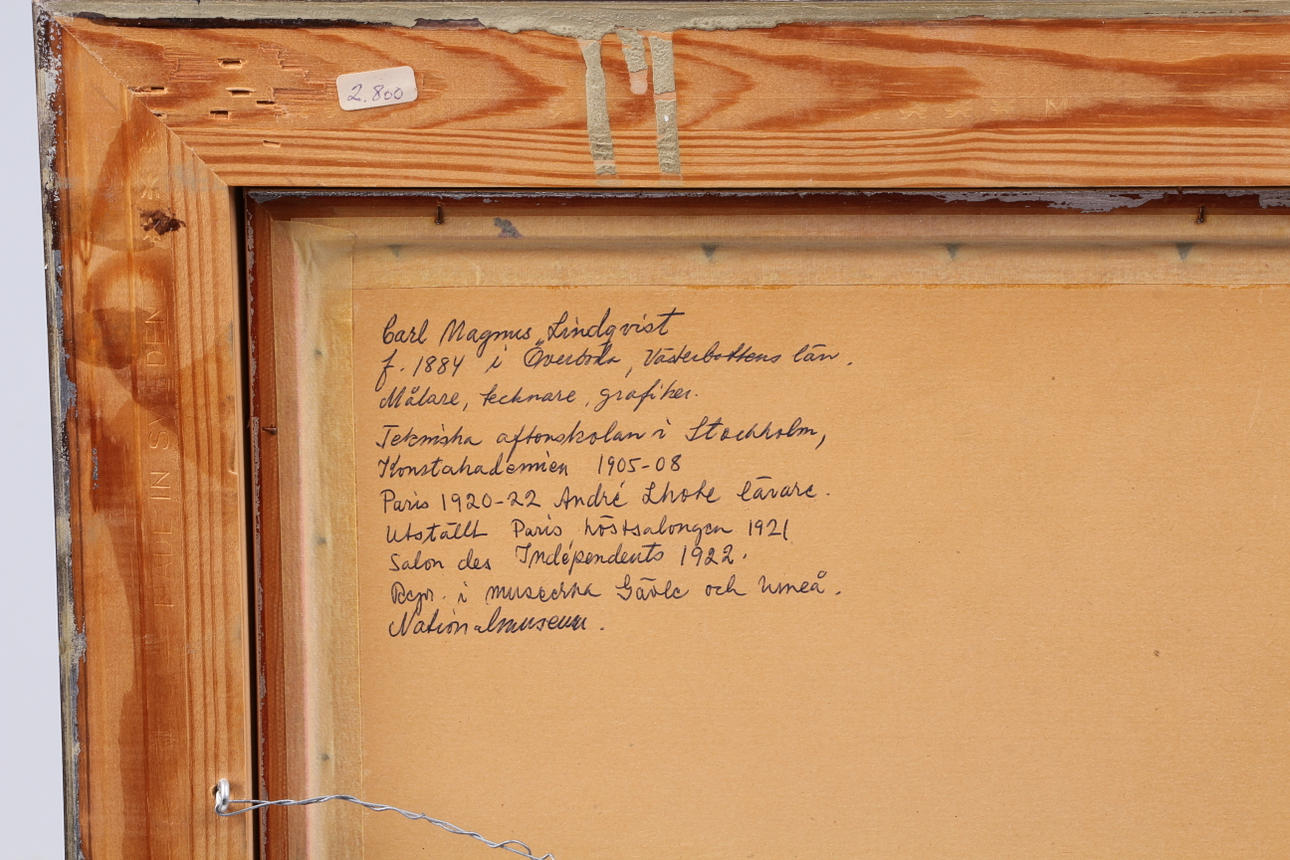 2.800
MADE IN SWEDEN
Carl Magnus Lindqvist
f. 1884 i Överboda, Västerbottens län.
Målare, tecknare, grafiker.
Tekniska aftonskolan i Stockholm,
Konstakademien 1905-08
Paris 1920-22 André Lhote lärare.
Utställt Paris höstsalongen 1921
Salon des Indépendents 1922.
Repr. i museerna Gävle och Umeå.
Nationalmuseum.